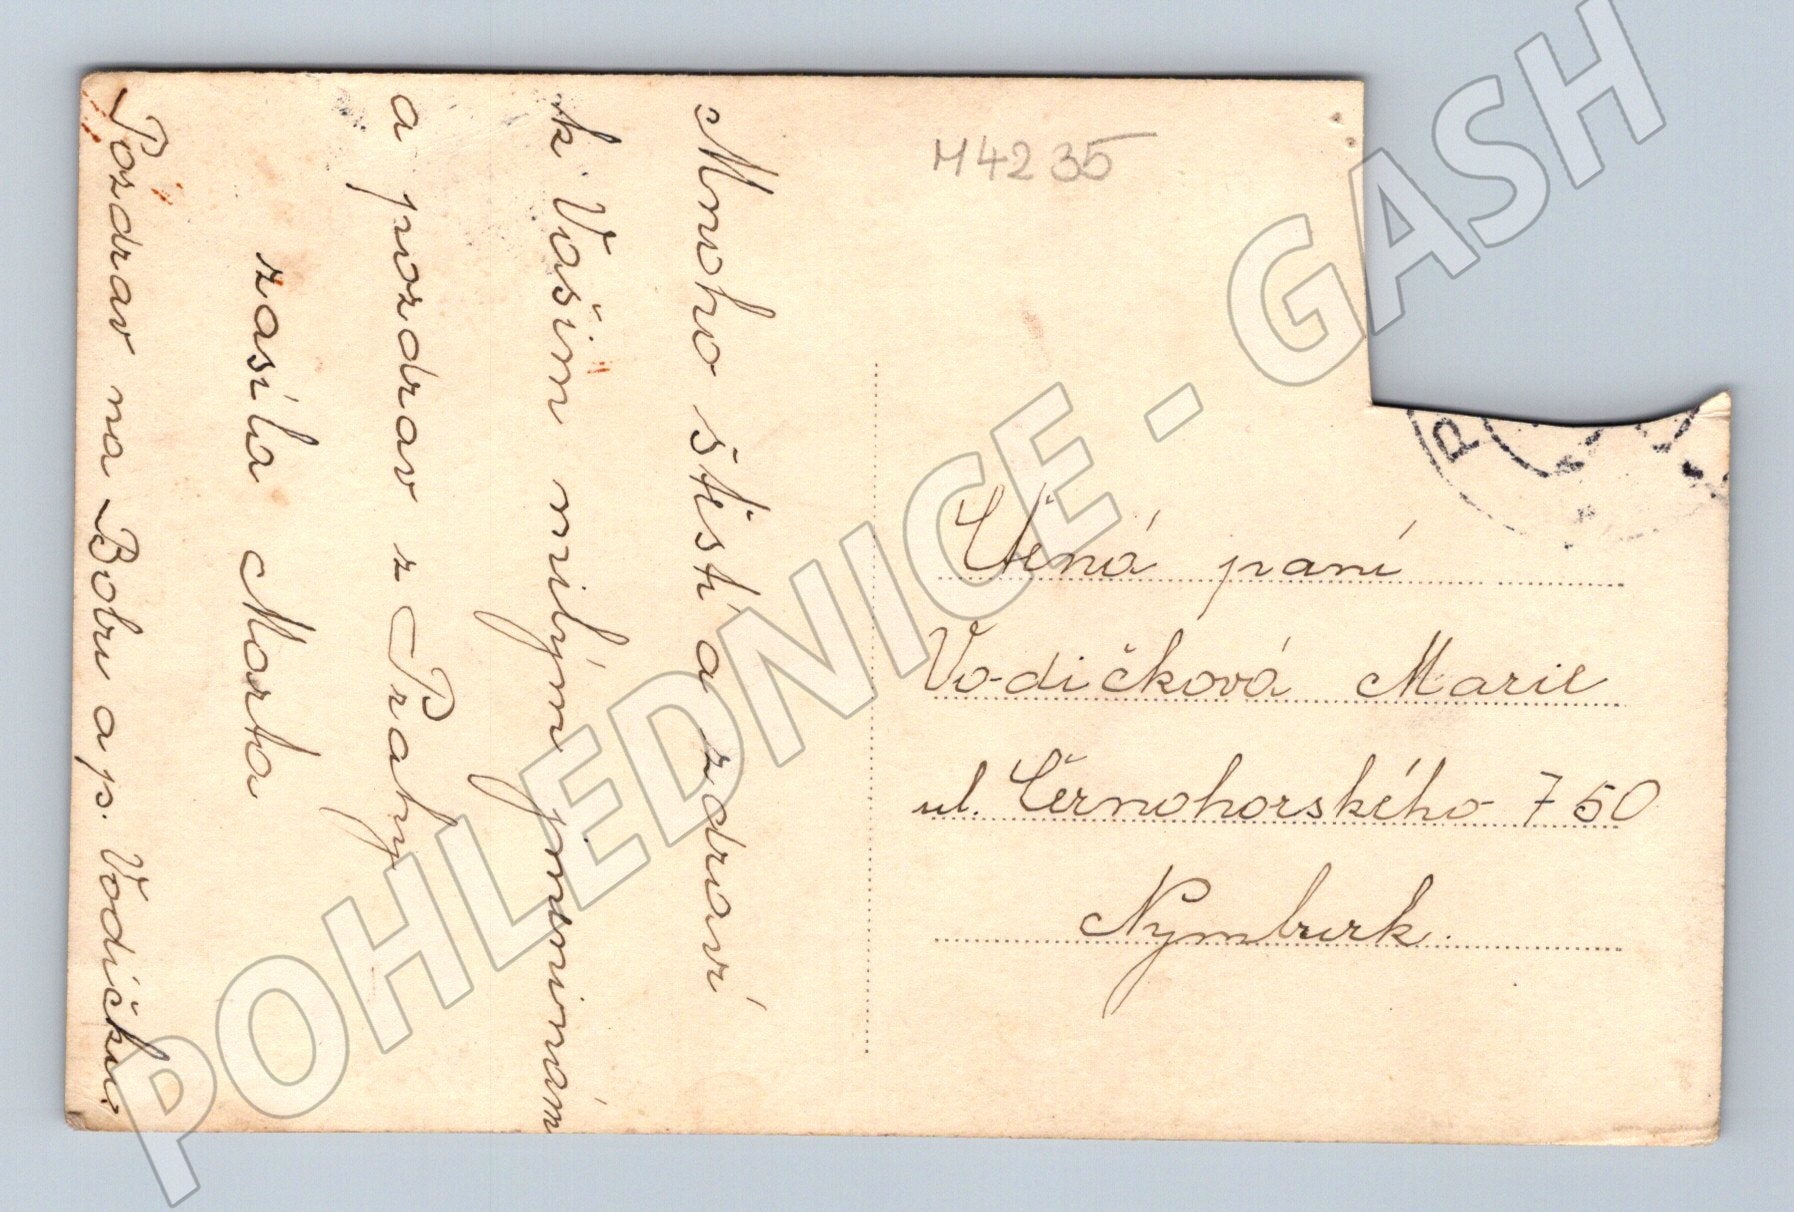 Mnoho štěstí a zdraví
k Vašim milým jmeninám
a pozdrav z Prahy
zasílá Marta
Pozdrav na Bobu a p. Vodičku.
M4235
Ctěná paní
Vodičková Marie
ul. Černohorského 750
Nymburk.
P
POHLEDNICE - GASH